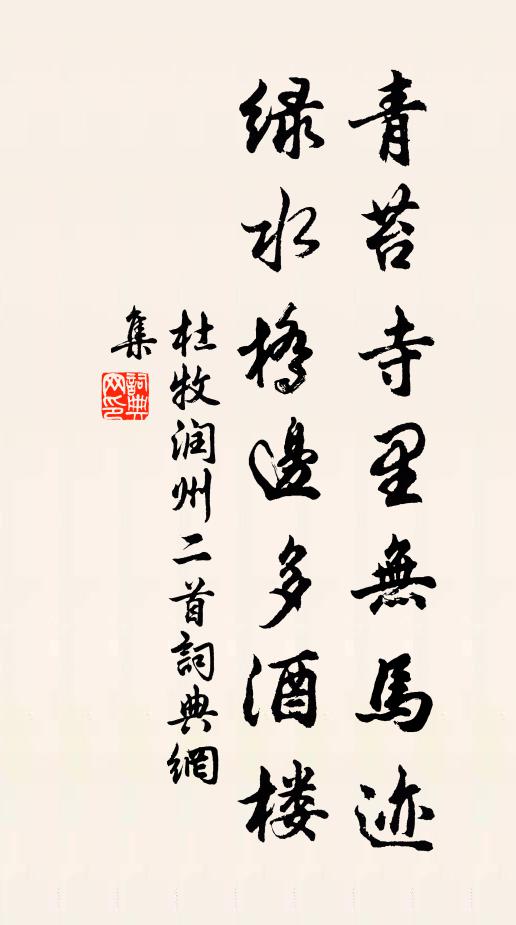 青苔寺里無馬迹
绿水橋邊多酒楼
杜牧润州二首詞典網
集
詞典网印